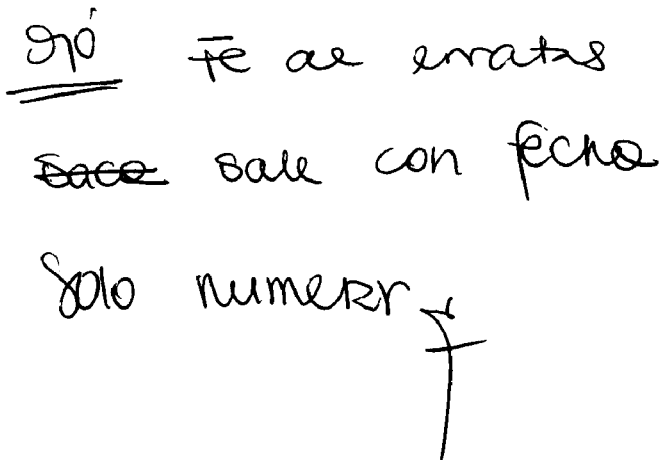 ojó Fe de erratas
saca sale con fecha
Solo numerar